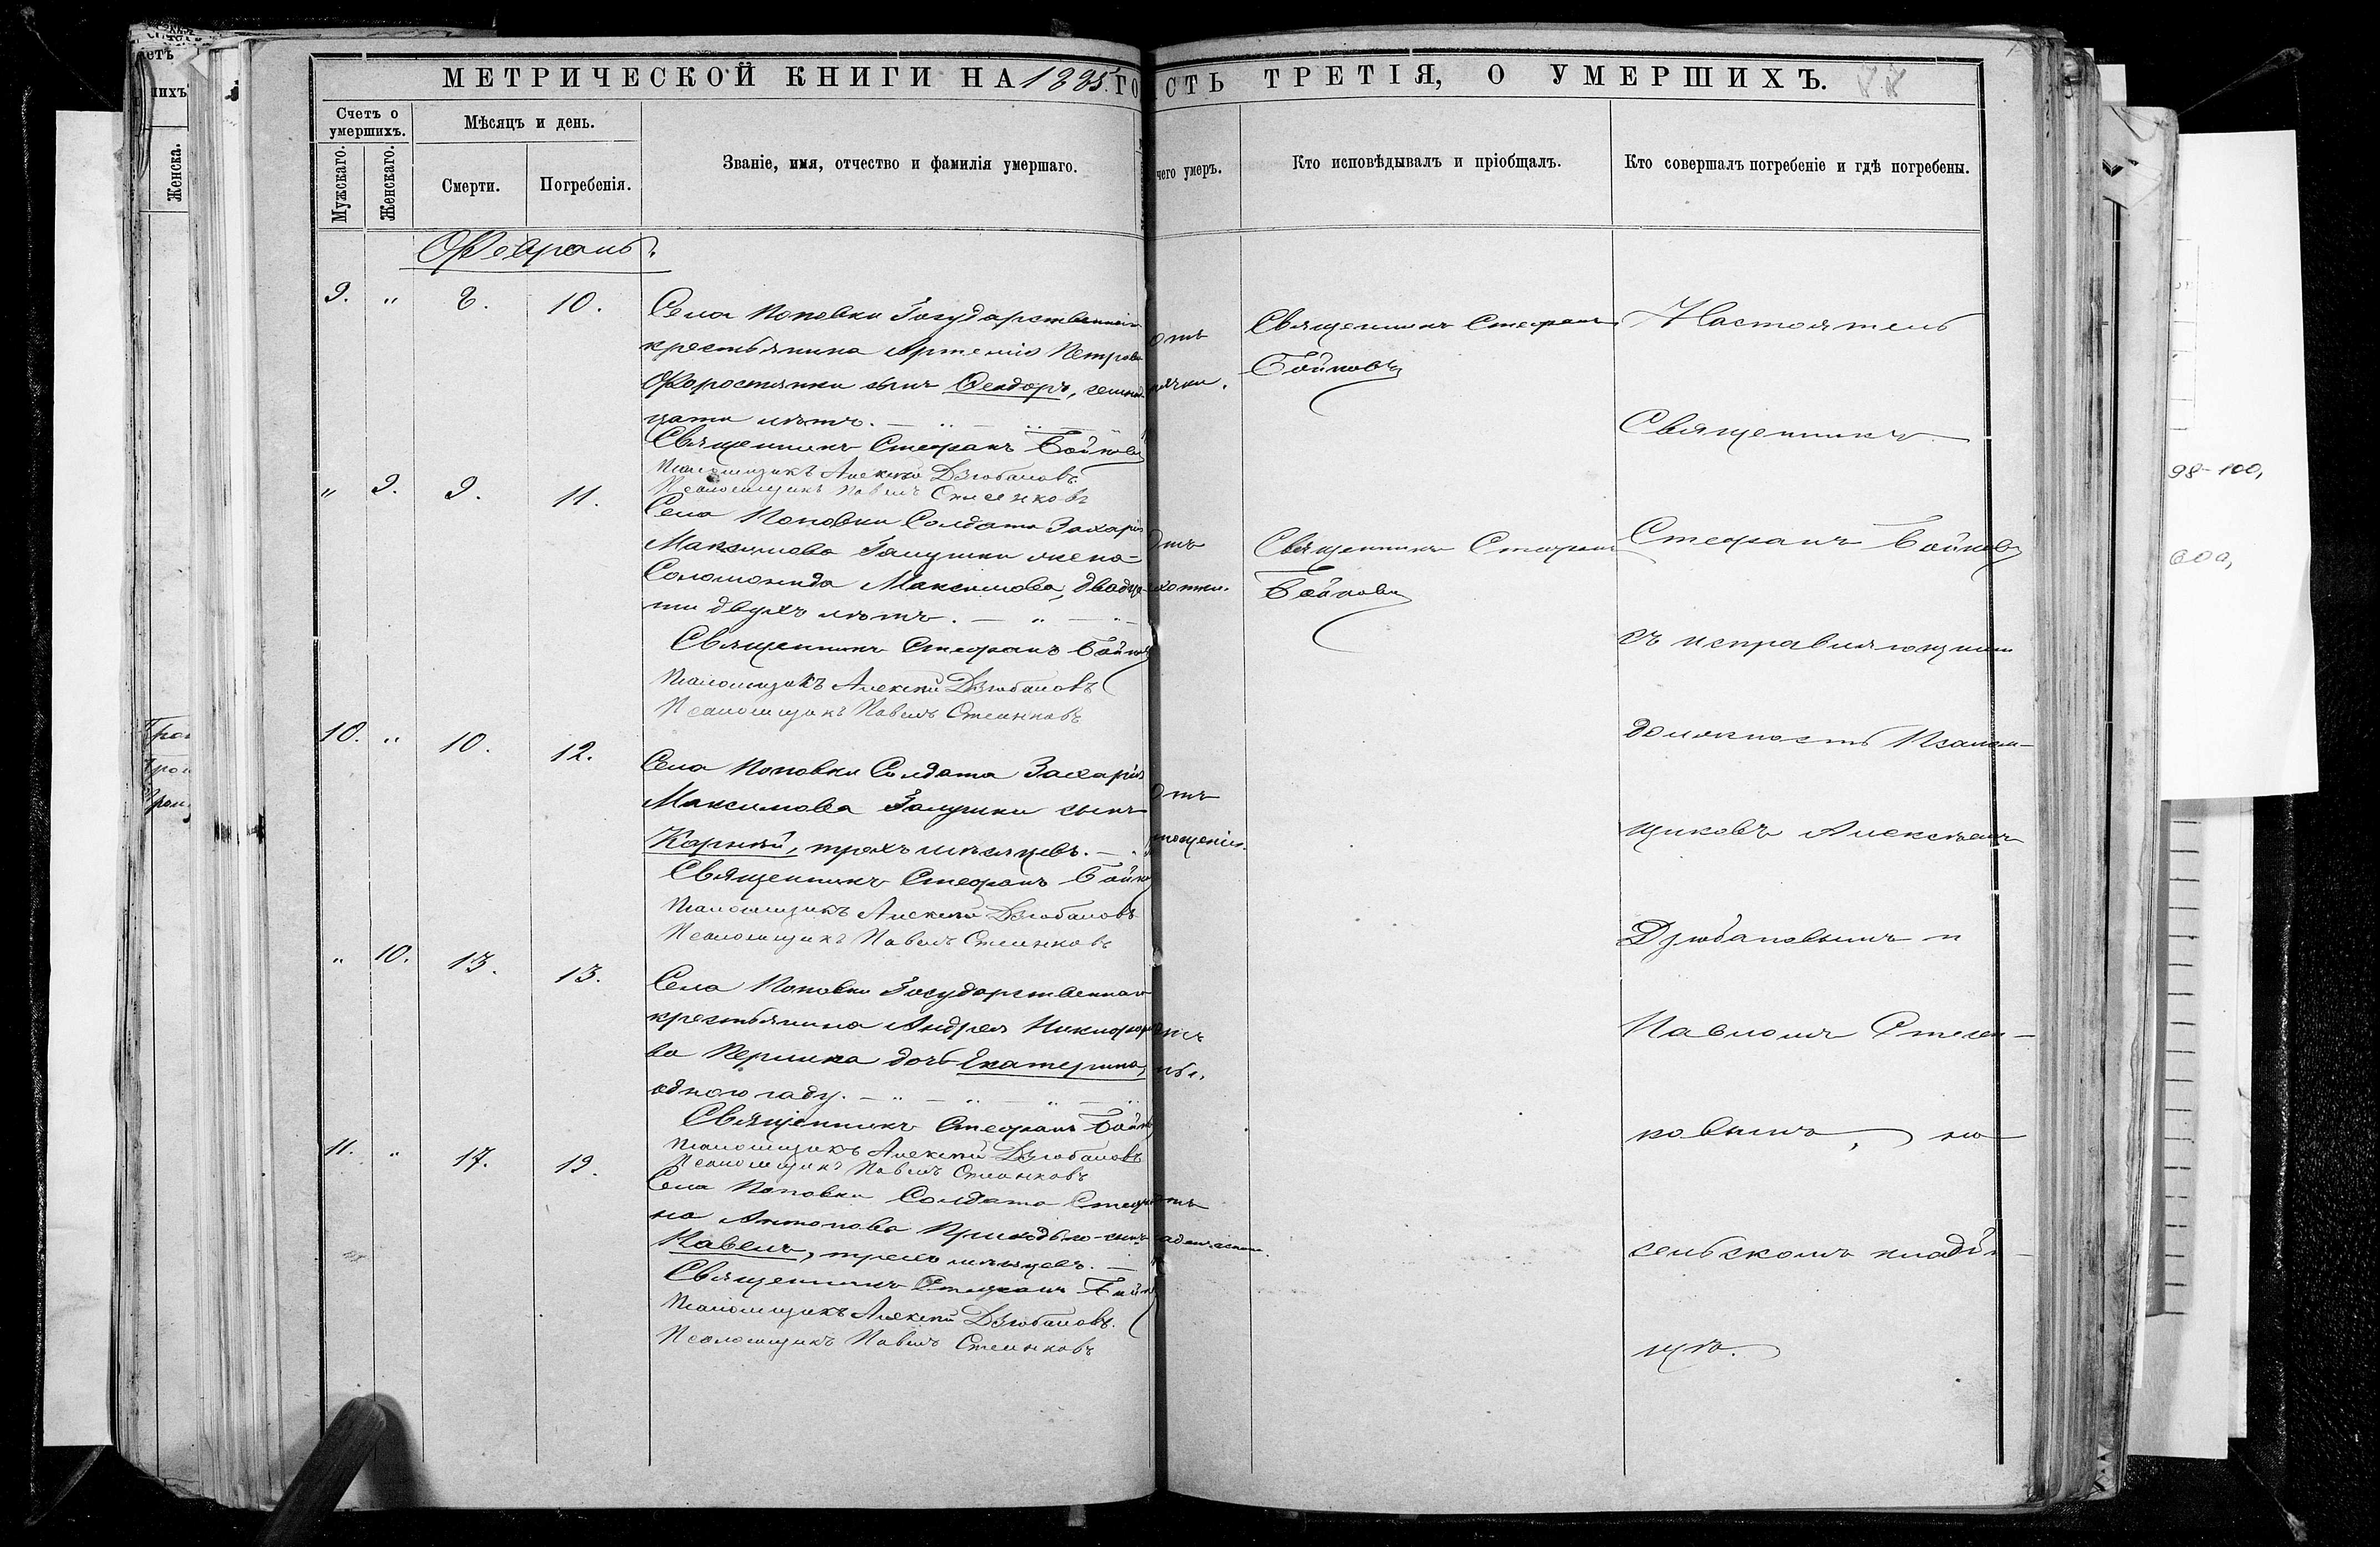 МЕТРИЧЕСКОЙ КНИГИ НА 1885 ГО
СТЬ ТРЕТІЯ, О УМЕРШИХЪ. 88
Счетъ о умершихъ.
Мѣсяцъ и день.
Званіе, имя, отчество и фамилія умершаго.
чего умеръ.
Кто исповѣдывалъ и пріобщалъ.
Кто совершалъ погребеніе и гдѣ погребены.
Мужскаго.
Женскаго.
Смерти.
Погребенія.
Февраль.
9. " 8. 10.
Села Поповки Государственнаго
крестьянина Артемія Петрова
Форостянки сынъ Ѳеодоръ, семнад
цати лѣтъ.
Священникъ Стефанъ Бойковъ
Псаломщикъ Алексѣй Дзюбановъ
Псаломщикъ Павелъ
отъ
ячки.
Священникъ Стефанъ
Бойковъ
" 9. 9. 11.
Села Поповки Солдата Захарія
Максимова Галушки жена
Соломонида Максимова, двадца
ти двухъ лѣтъ.
Священникъ Стефанъ Бойковъ
Псаломщикъ Алексѣй Дзюбановъ
Псаломщикъ Павелъ
Отъ
чахотки.
Священникъ Стефанъ
Бойковъ
10. " 10. 12.
Села Поповки Солдата Захарія
Максимова Галушки сынъ
Карпъ, трехъ мѣсяцевъ.
Священникъ Стефанъ Бойков
Псаломщикъ Алексѣй Дзюбановъ
Псаломщикъ Павелъ
Отъ
" 10. 13. 13.
Села Поповки Государственнаго
крестьянина Андрея Никифоро
ва дочь Екатерина,
одного году.
Священникъ Стефанъ Бойков
Псаломщикъ Алексѣй Дзюбановъ
Псаломщикъ Павелъ
11. " 17. 19.
Села Поповки Солдата Стефа
на Антонова Приходько сынъ
Павелъ, трехъ мѣсяцевъ.
Священникъ Стефанъ Бойков
Псаломщикъ Алексѣй Дзюбановъ
Псаломщикъ Павелъ
отъ
Настоятель
Священникъ
Стефанъ Бойковъ
съ исправляющими
должность Псалом-
щиковъ Алексѣемъ
Дзюбановымъ и
Павломъ
ковымъ, на
сельскомъ кладби-
щѣ.
98-100,
600,
ихъ
Женска.